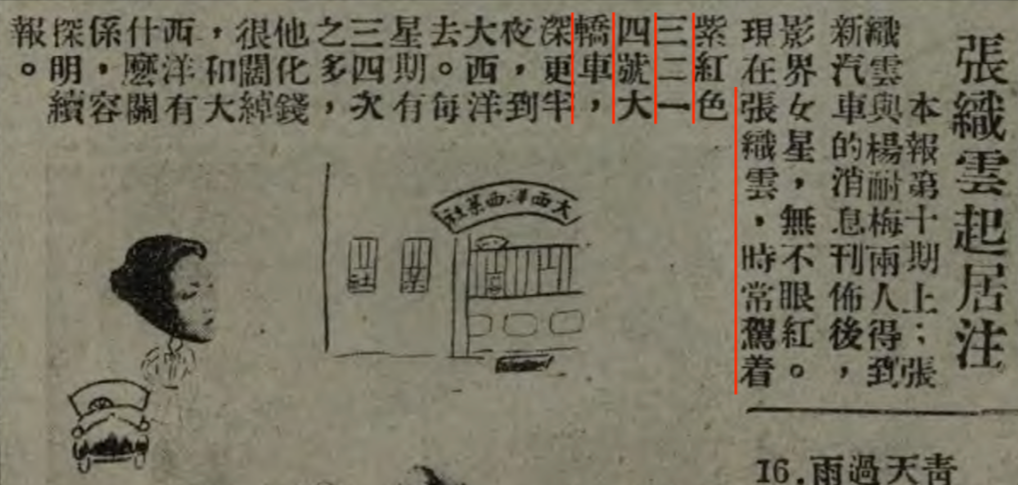 張織雲起居注
本報第十期上；張
織雲與楊耐梅兩人得到
新汽車的消息刊佈後，
影界女星，無不眼紅。
現在張織雲，時常駕着
紫紅色
三二一
四號大
轎車，
深更半
夜，到
大西洋
去。每
星期有
三四次
之多，
他化錢
很闊綽
，和大
西洋有
什麼關
係，容
探明續
報。
大西洋西菜社
菜
社
16.雨過天青